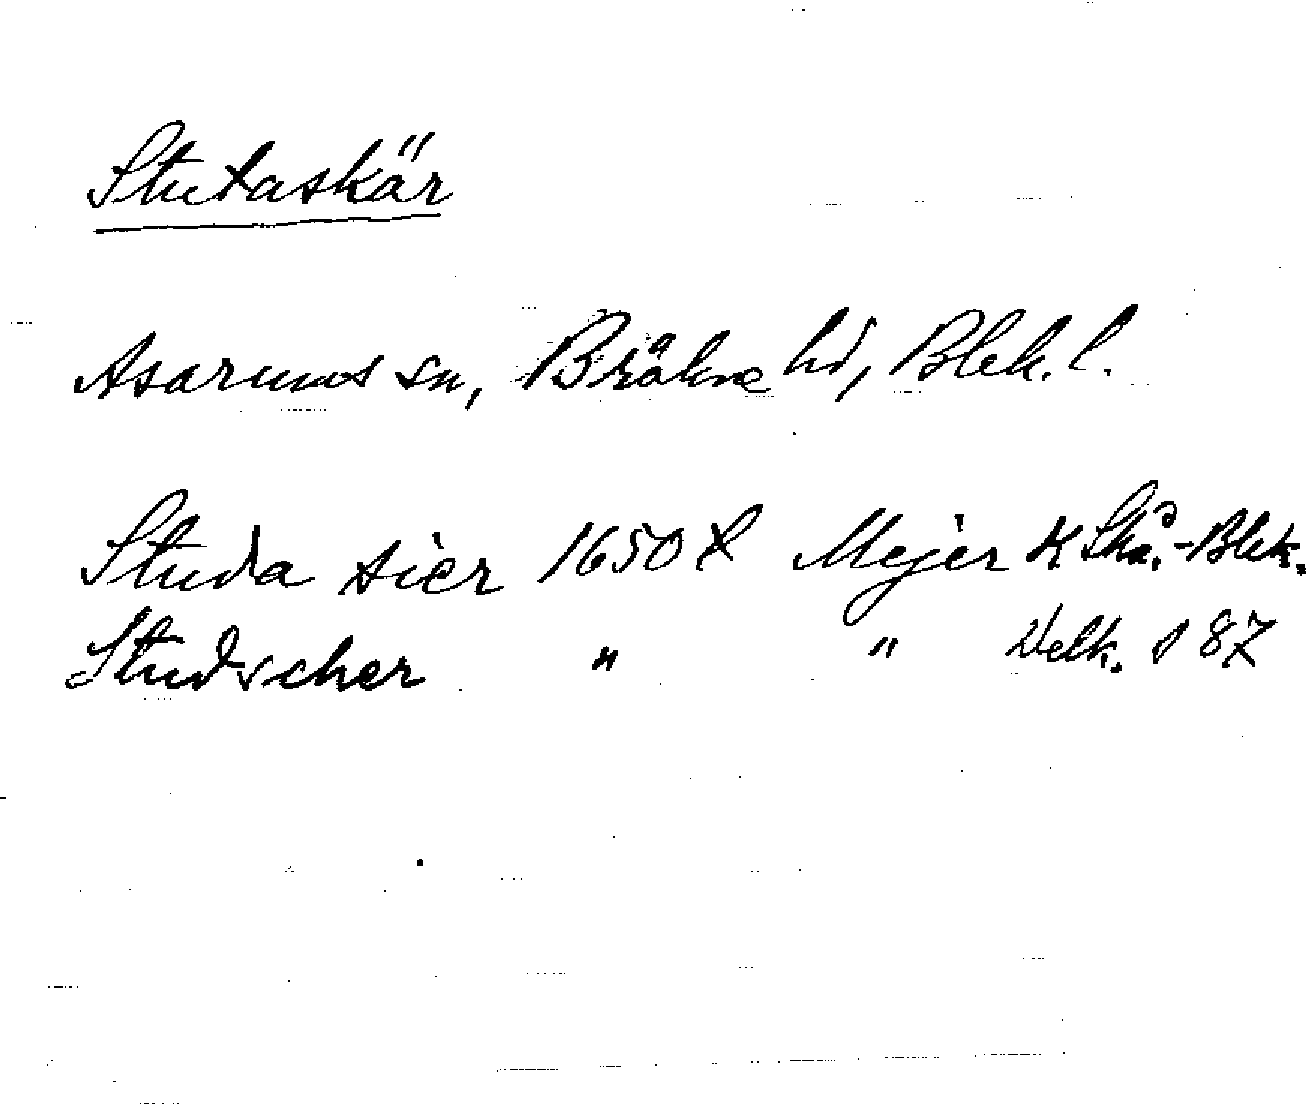 Stutaskär
Asarums sn, Bräkne hd, Blek. l.
Studa sier 1650 t Mejer K Skå.-Blek.
Studscher " " Welk. s 87